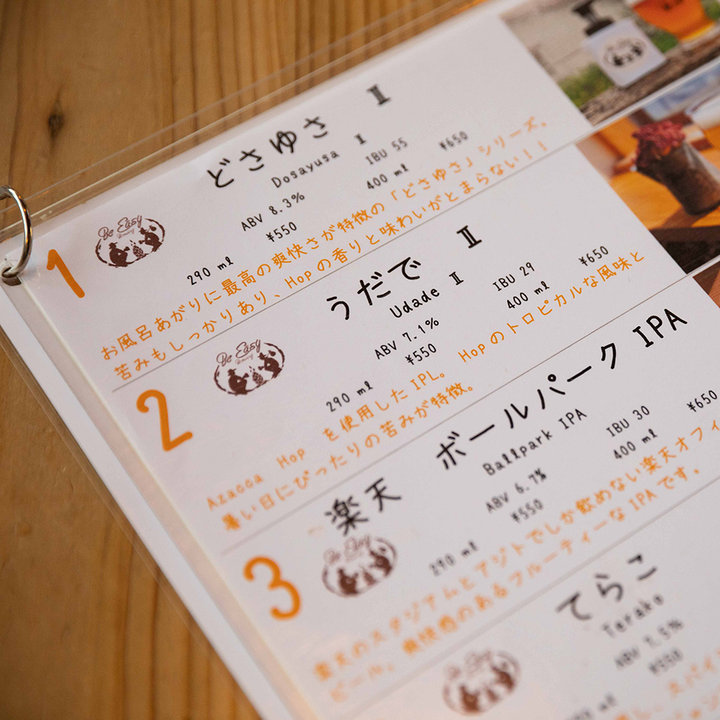 1
Be Easy
Brewing
どさゆさ Ⅱ
Dosayusa Ⅱ
ABV 8.3% IBU 55
290 ml ¥550 400 ml ¥650
お風呂あがりに最高の爽快さが特徴の「どさゆさ」シリーズ。
苦みもしっかりあり、Hopの香りと味わいがとまらない!!
2
Be Easy
Brewing
うだで Ⅱ
Udade Ⅱ
ABV 7.1% IBU 29
290 ml ¥550 400 ml ¥650
Azacca Hop を使用したIPL。 Hopのトロピカルな風味と
暑い日にぴったりの苦みが特徴。
3
Be Easy
楽天 ボールパーク IPA
Ballpark IPA
ABV 6.7% IBU 30
290 ml ¥550 400 ml ¥650
楽天のスタジアムとアジトでしか飲めない楽天オフィ
ビール。爽快感のあるフルーティーなIPAです。
Be Easy
てらこ
Terako
ABV 7.5%
290 ml ¥550